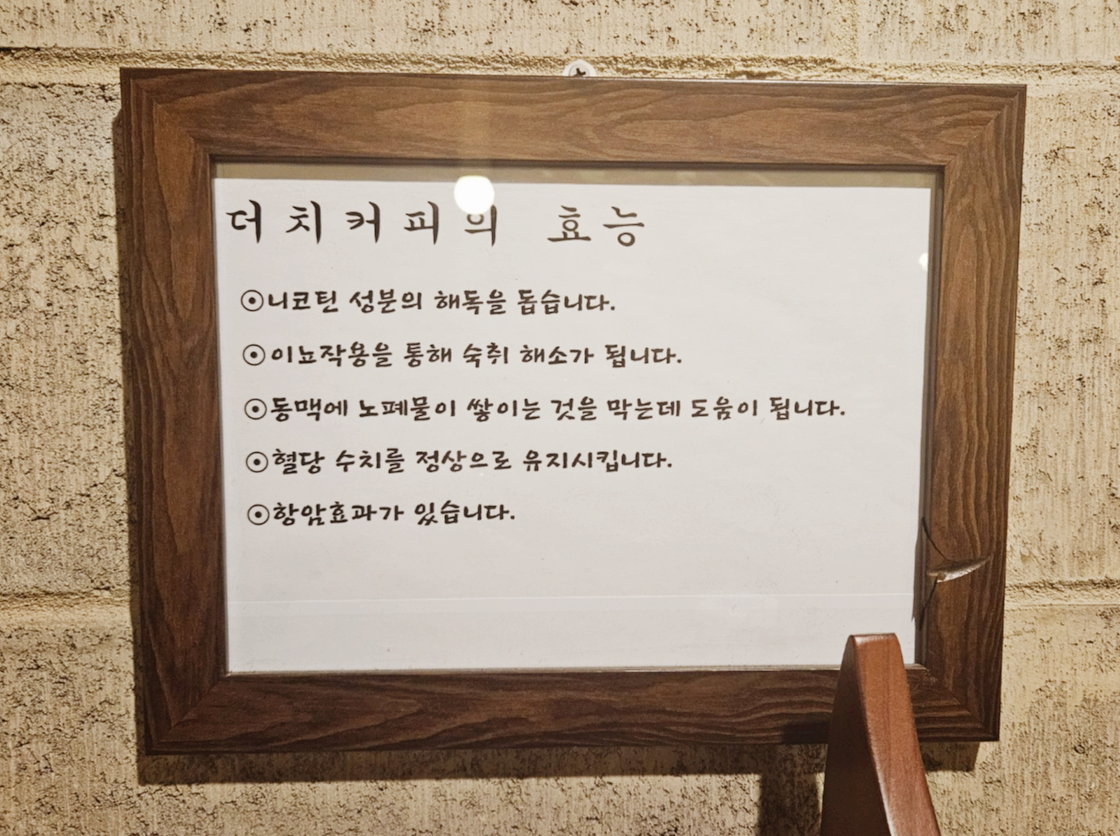 더치커피의 효능
⊙니코틴 성분의 해독을 돕습니다.
⊙이뇨작용을 통해 숙취 해소가 됩니다.
⊙동맥에 노폐물이 쌓이는 것을 막는데 도움이 됩니다.
⊙혈당 수치를 정상으로 유지시킵니다.
⊙항암효과가 있습니다.